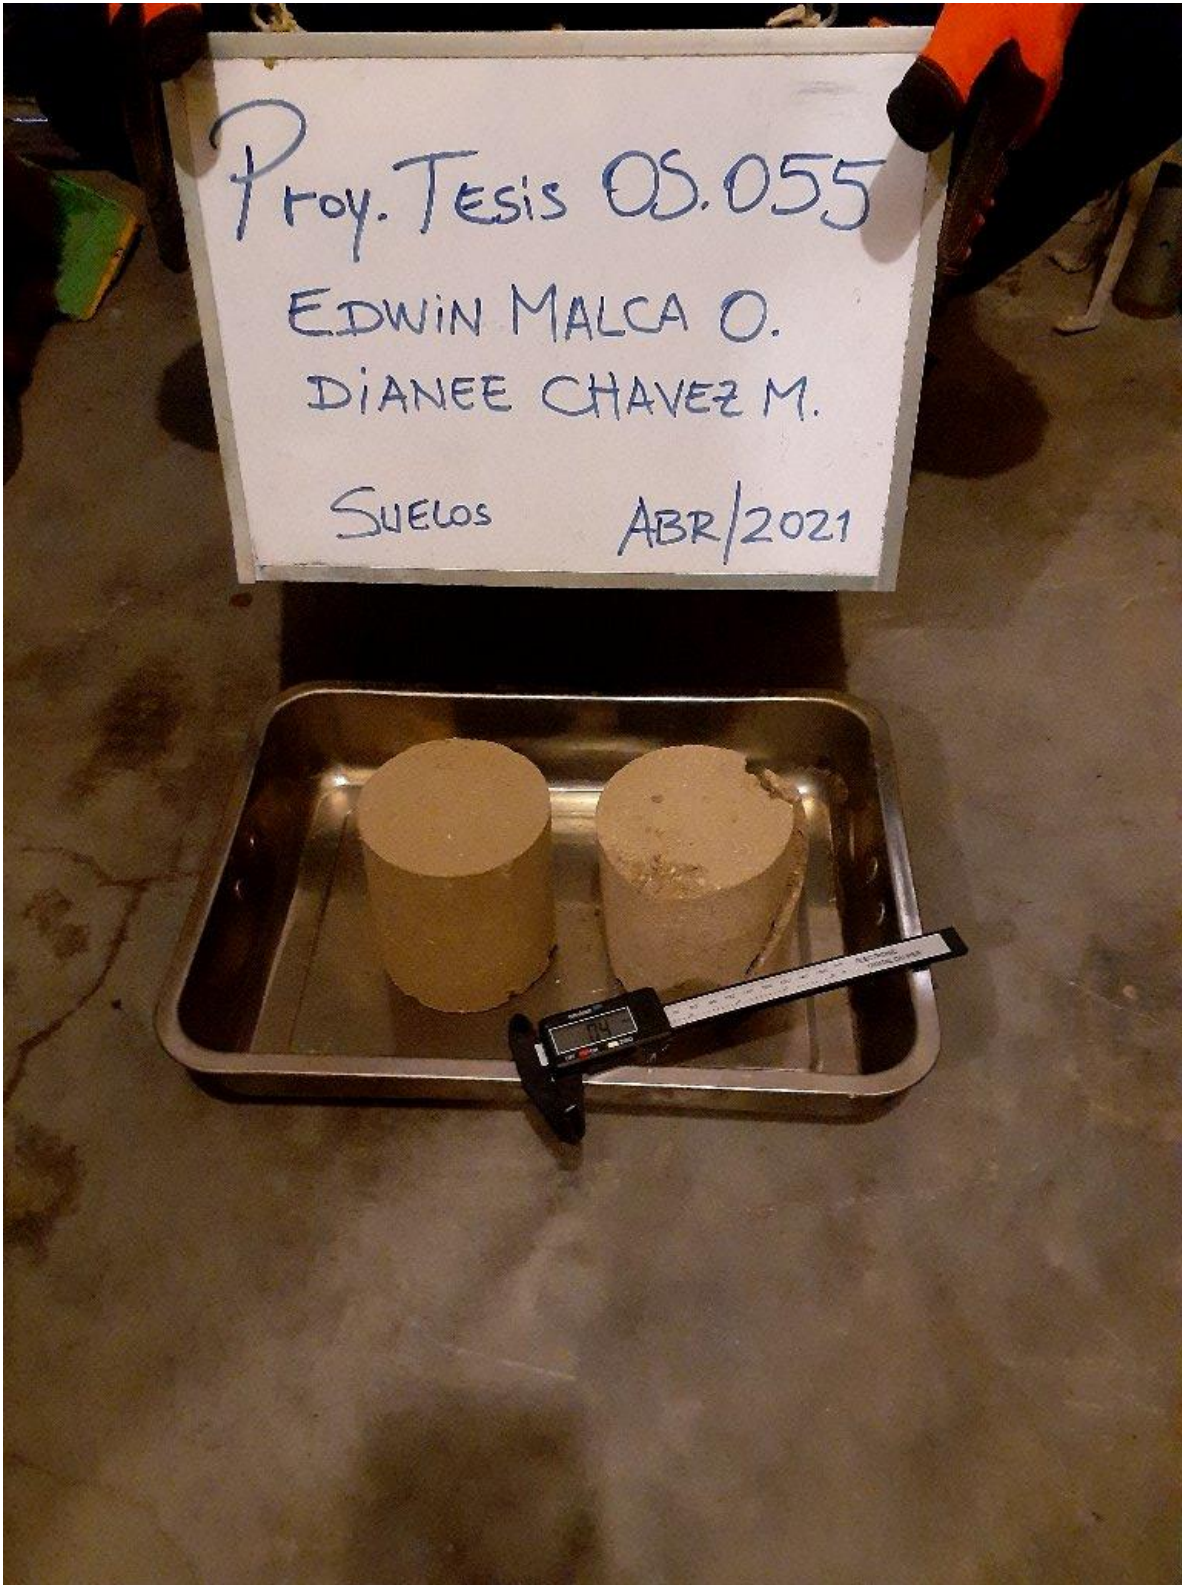 Proy. Tesis OS.055
EDWiN MALCA O.
DiANEE CHAVEZ M.
SUELOS ABR/2021